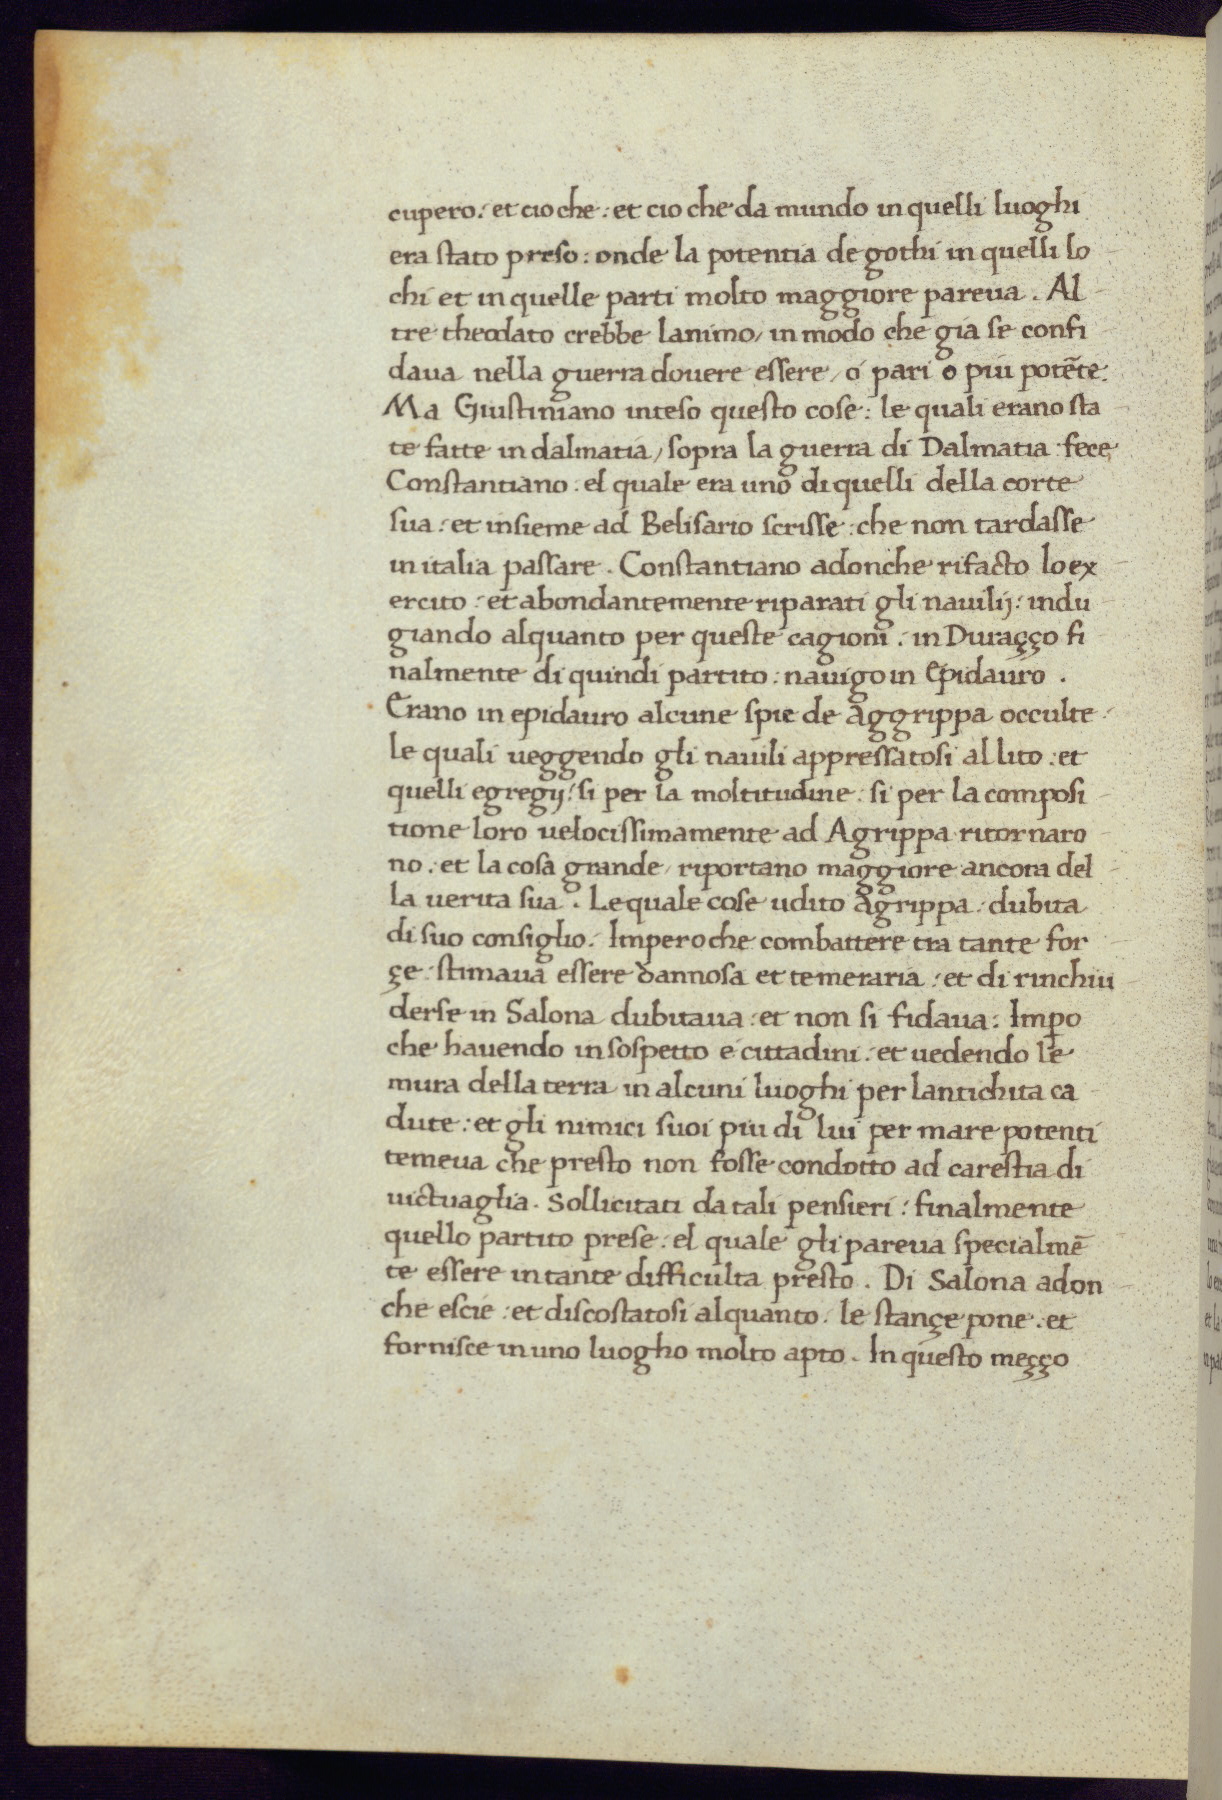 cupero: et cio che: et cio che da mundo in quelli luoghi
era stato preso: onde la potentia de gothi in quelli lo
chi et in quelle parti molto maggiore pareua. Al
tre theodato crebbe lanimo, in modo che gia se confi
daua nella guerra douere essere, o pari o piu potēte.
Ma Giustiniano inteso questo cose: le quali erano sta
te fatte in dalmatia, sopra la guerra di Dalmatia fece
Constantiano. el quale era uno di quelli della corte
sua: et insieme ad Belisario scrisse: che non tardasse
in italia passare. Constantiano adonche rifacto lo ex
ercito: et abondantemente riparati gli nauilij: indu
giando alquanto per queste cagioni: in Duraçço fi
nalmente di quindi partito: nauigo in Epidauro.
Erano in epidauro alcune spie de Aggrippa occulte:
le quali ueggendo gli nauili appressatosi al lito: et
quelli egregij: si per la moltitudine: si per la composi
tione loro uelocissimamente ad Agrippa ritornaro
no: et la cosa grande, riportano maggiore ancora del
la uerita sua. Le quale cose udito Agrippa: dubita
di suo consiglio. Impero che combattere tra tante for
çe stimaua essere dannosa et temeraria: et di rinchiu
derse in Salona dubitaua: et non si fidaua: Imꝑo
che hauendo in sospetto e cittadini: et uedendo le
mura della terra in alcuni luoghi per lantichita ca
dute: et gli nimici suoi piu di lui per mare potenti
temeua che presto non fosse condotto ad carestia di
uictuaglia. Sollicitati da tali pensieri: finalmente
quello partito prese: el quale gli pareua specialmē
te essere in tante difficulta presto. Di Salona adon
che escie: et discostatosi alquanto: le stançe pone: et
fornisce in uno luogho molto apto. In questo meçço